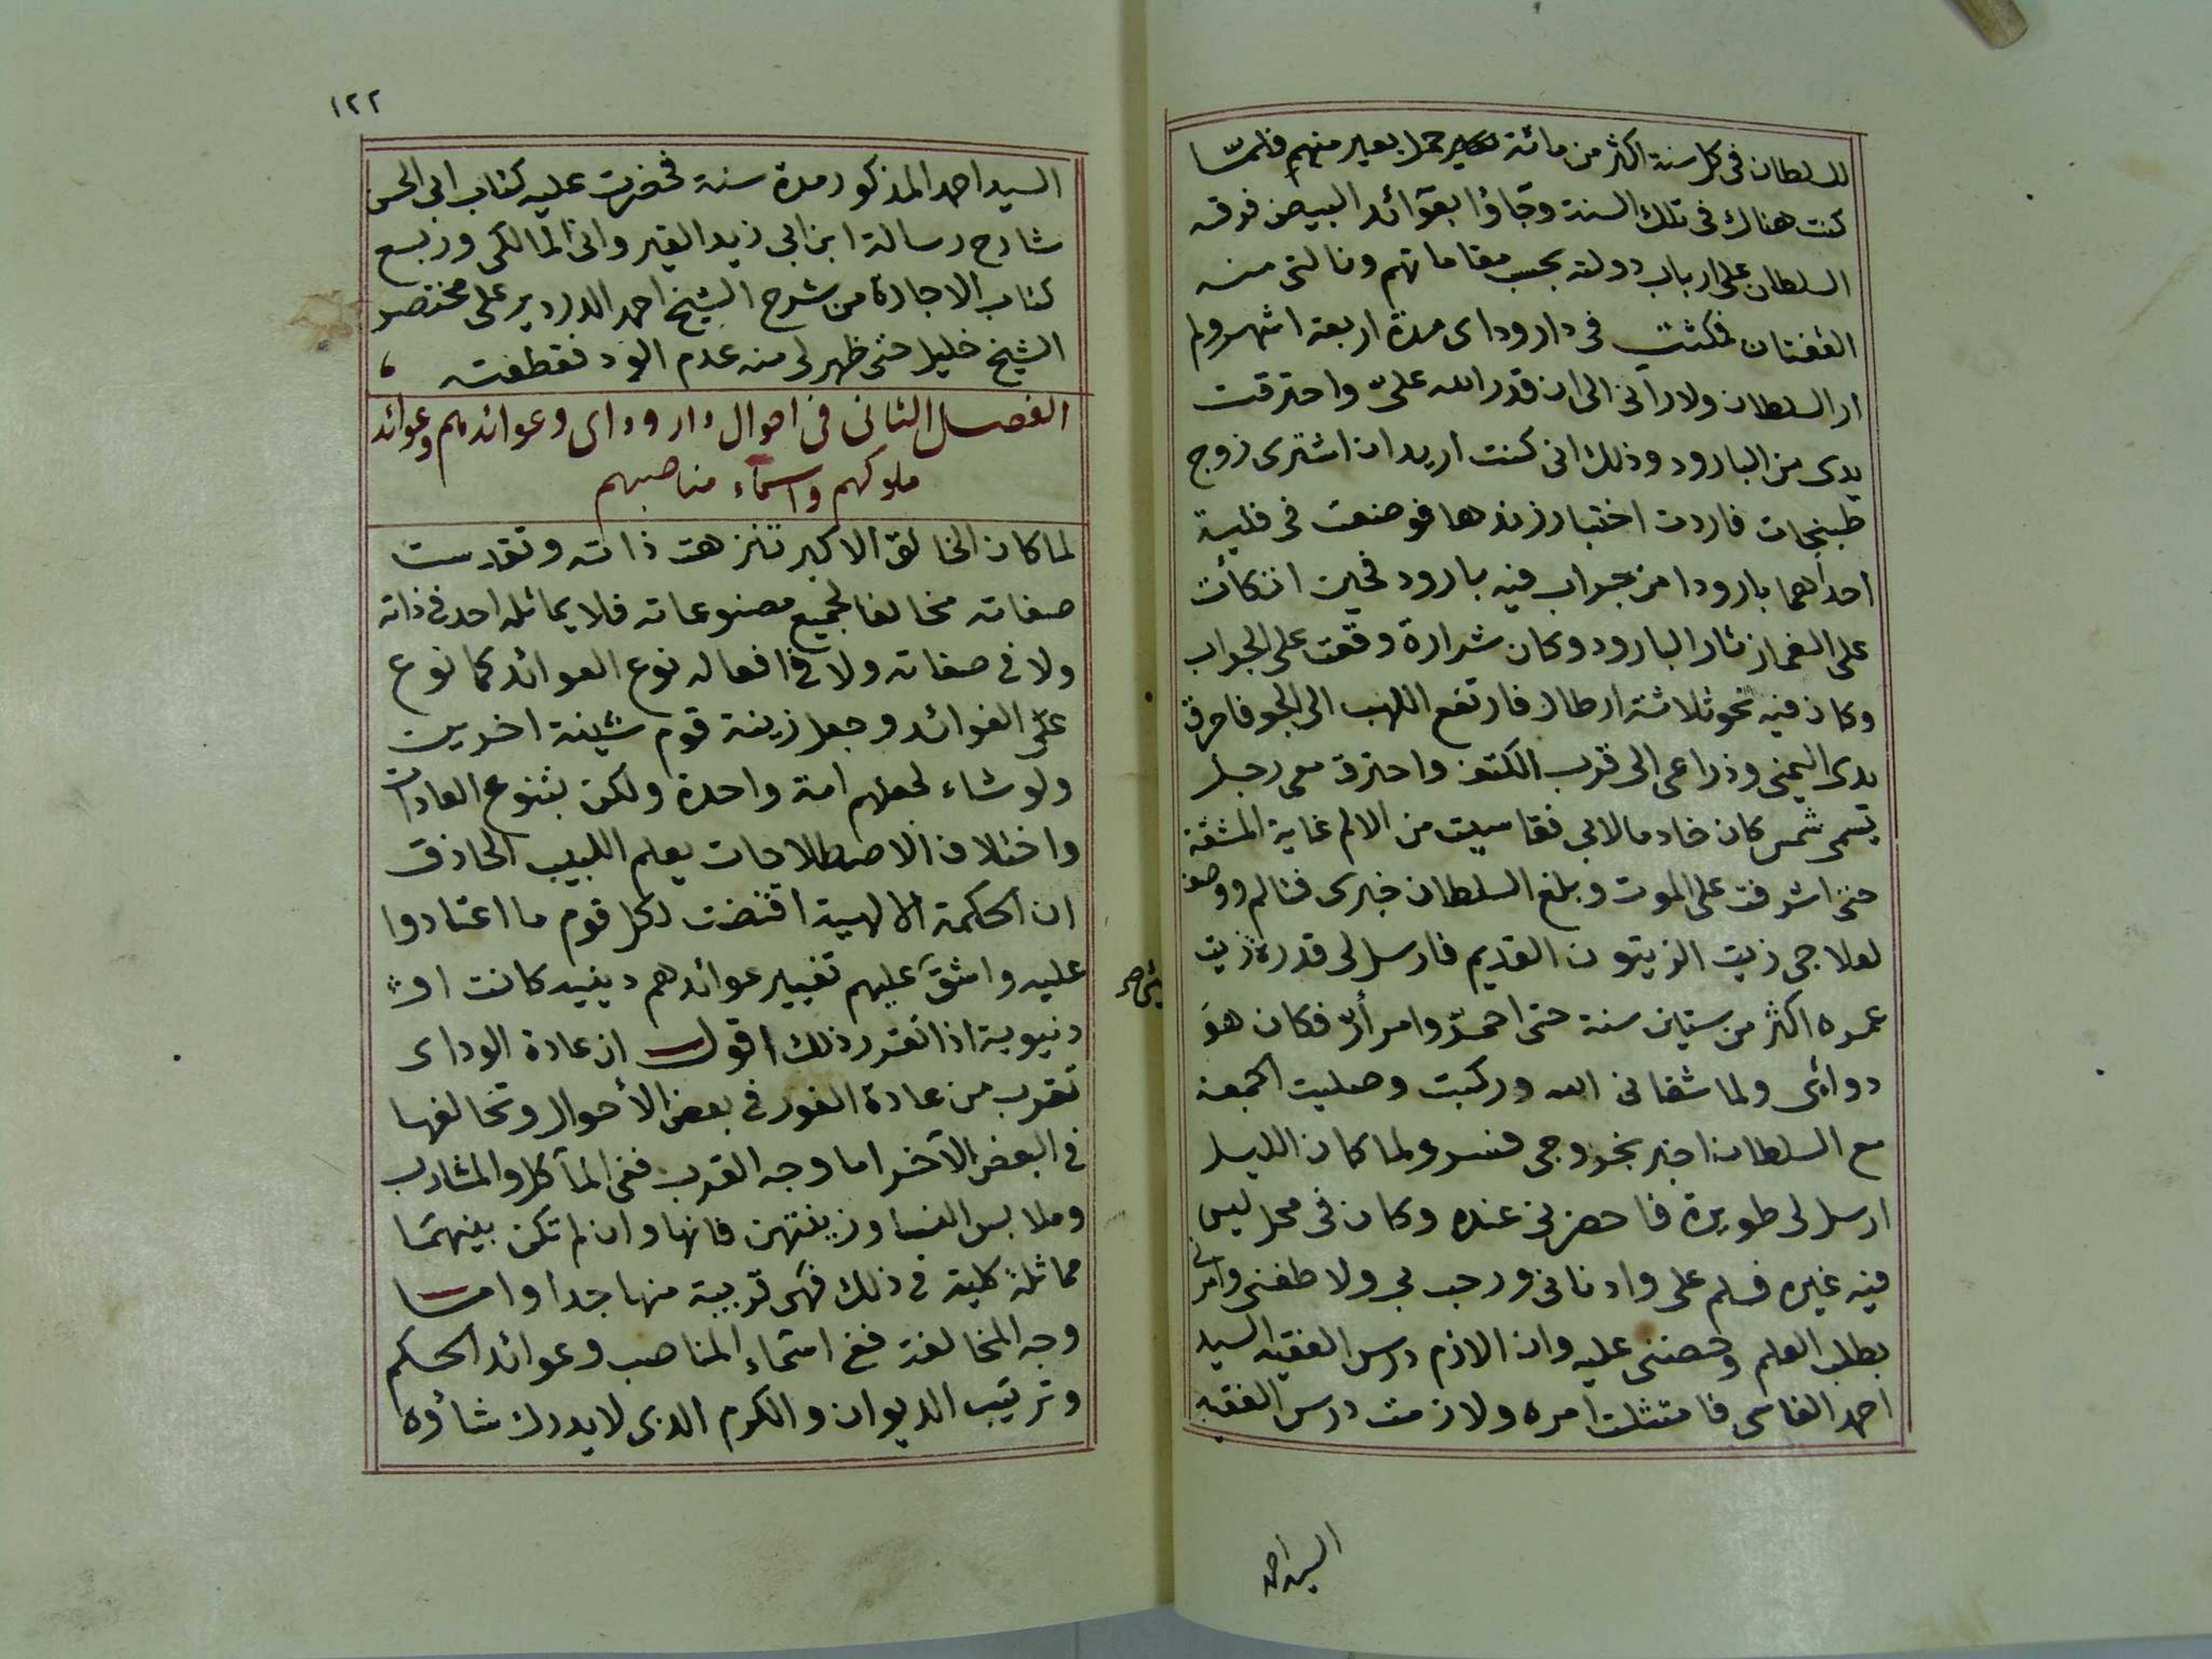 للسلطان فى كل سنة اكثر من مائة حمل بعير منهم فلمّا
كنت هناك فى تلك السنة وجاؤا بعوائد البيض فرقه
السلطان على ارباب دولته بحسب مقاماتهم ونالنى منه
القفتان فمكثت فى دار وداى مدة اربعة اشهر ولم
ار السلطان ولا رآنى الى ان قدر الله علىّ واحترقت
يدى من البارود وذلك انى كنت اريد ان اشترى زوج
طبنجات فاردت اختبار زندها فوضعت فى فلية
احداهما بارودا من جواب فيه بارود فحين اتكأت
على الغماز ثار البارود وكان شرارة وقعت على الجواب
وكان فيه نحو ثلاثة ارطال فارتفع اللهب الى الجو فاحرق
يدى اليمنى وذراعى الى قرب الكتف واحترق معى رجل
يسمى شمس كان خادما لابى فقاسيت من الالم غاية المشقة
حتى اشرفت على الموت وبلغ السلطان خبرى فتالم ووصف
لعلاجى زيت الزيتون القديم فارسل لى قدرة زيت
عمره اكثر من ستين سنة حتى احمرّ وامرأرّ فكان هو
دوائى ولما شفانى الله وركبت وصليت الجمعة
مع السلطان اخبر بخروجى فسر ولما كان الليل
ارسل لى طويرة فاحضرنى عنده وكان فى محل ليس
فيه غيره فسلم على وادنانى ورحب بى ولاطفنى وامرنى
بطلب العلم وحضنى عليه وان الازم درس الفقيه السيد
احمد الفاسى فامتثلت امره ولازمت درس الفقيه
السيد احمد
١٢٢
السيد احمد المذكور مدة سنة فحضرت عليه كتاب ابى الحسن
شارح رسالة ابن ابى زيد القيروانى المالكى وربع
كتاب الاجارة من شرح الشيخ احمد الدردير على مختصر
الشيخ خليل حتى ظهر لى منه عدم الود فقطعته
الفصل الثانى فى احوال دار وداى وعوائدهم وعوائد
ملوكهم واسماء مناصبهم
لما كان الخالق الاكبر تنزهت ذاته وتقدست
صفاته مخالفا لجميع مصنوعاته فلا يماثله احد فى ذاته
ولا فى صفاته ولا فى افعاله نوع العوائد كما نوع
علىّ الفوائد وجعل زينة قوم شينة اخرين
ولو شاء لجعلهم امة واحدة ولكن بتنوع العادات
واختلاف الاصطلاحات يعلم اللبيب الحاذق
ان الحكمة الالهية اقتضت لكل قوم ما اعتادوا
عليه واشقّ عليهم تغيير عوائدهم دينيه كانت او
دنيوية اذا تقرر ذلك اقول ان عادة الوداى
تقرب من عادة الفور فى بعض الأحوال وتخالفها
فى البعض الآخر اما وجه القرب ففى المآكل والمشارب
وملابس النسا وزينتهن فانها وان لم تكن بينهما
مماثلة كلية فى ذلك فهى قريبة منها جدا واما
وجه المخالفة ففى اسماء المناصب وعوائد الحكم
وترتيب الديوان والكرم الذى لا يدرك شأوه